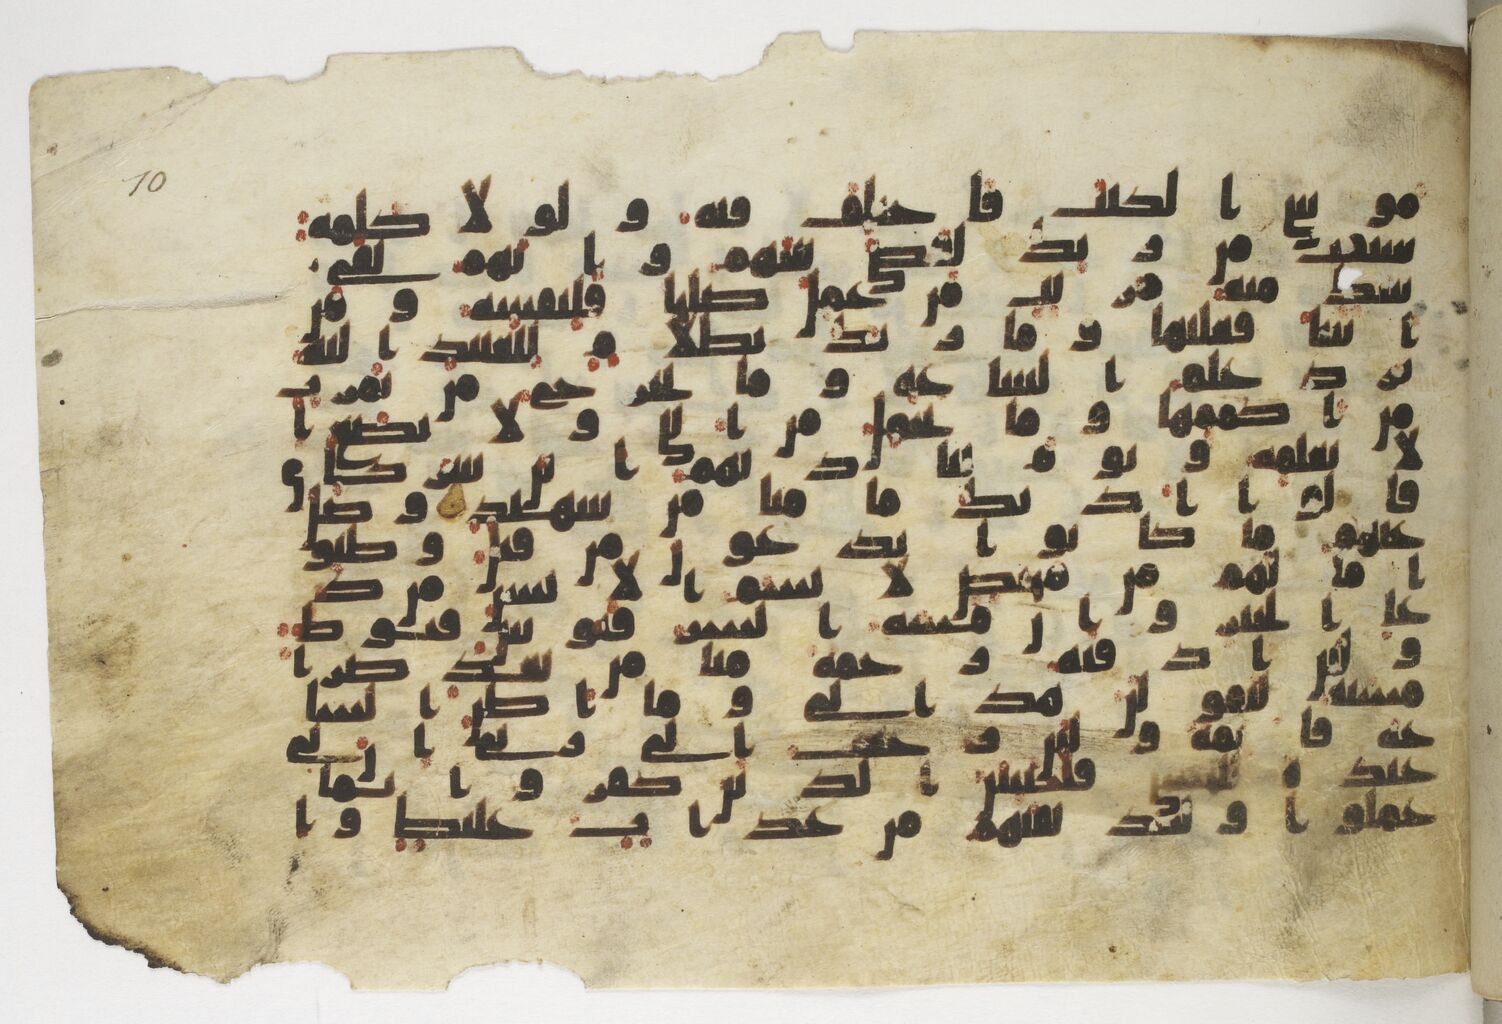 10
موسى الكتب فاختلف فيه ولولا كلمة
سبقت من ربك لقضى بينهم وانهم لفى
شك منه مريب من عمل صلحا فلنفسه ومن
اسا فعليها وما ربك بظلم للعبيد اليه
يرد علم الساعة وما تخرج من ثمرت
من اكمامها وما تحمل من انثى ولا تضع ا
لا بعلمه ويوم يناديهم اين شركاى
قالوا اذنك ما منا من شهيد وضل
عنهم ما كانوا يدعون من قبل وظنو
ا ما لهم من محيص لا يسم الانسن من د
عا الخير وان مسه الشر فيوس قنوط
ولئن اذقنه رحمة منا من بعد ضرا
مسته ليقولن هذا لى وما اظن السا
عة قائمة ولئن رجعت الى ربى ان لى
عنده للحسنى فلننبئن الذين كفروا بما
عملوا ولنذيقنهم من عذاب غليظ وا